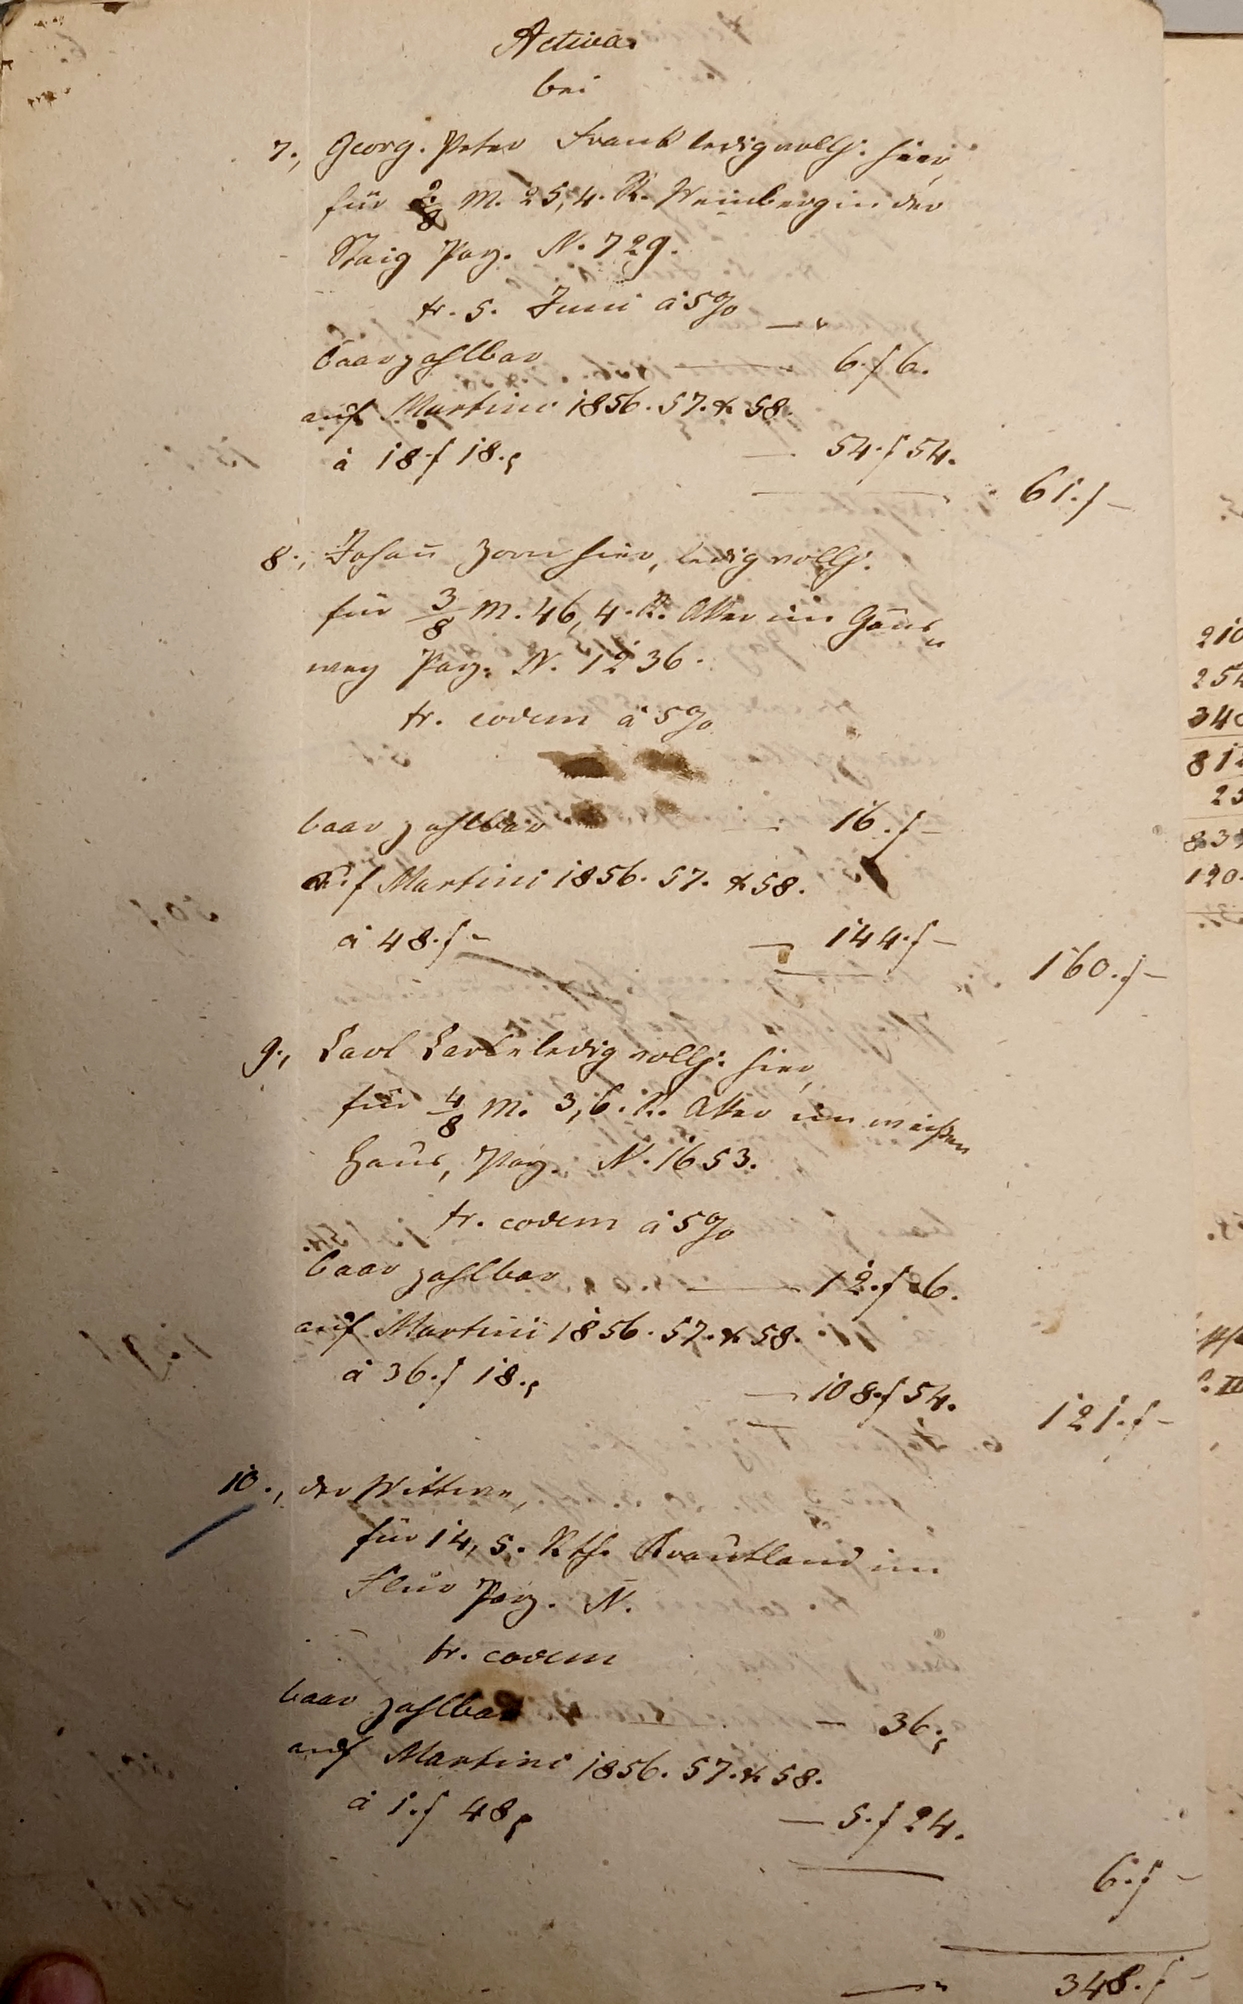 Activa
bei
7., Georg Peter Frank ledig vollj. hier,
für 2/8 M. 25,4. R. Weinberg in der
Staig Parz. N. 729.
tr. 5. Juni à 5%
baar zahlbar — 6.f 6.
auf Martini 1856. 57. & 58.
à 18.f 18. — 54.f 54.
61.f —
8., Johann Zorn hier, ledig vollj.
für 3/8 M. 46,4. R. Aker im Gäns„
weg Parz. N. 1236.
tr. eodem à 5%
baar zahlbar — 16.f —
auf Martini 1856. 57. & 58.
à 48.f — — 144.f —
160.f —
9., Carl ledig vollj. hier,
für 4/8 M. 3,6. R. Aker im weißen
Haus, Parz. N. 1653.
tr. eodem à 5%
baar zahlbar — 12.f 6.
auf Martini 1856. 57. & 58.
à 36.f 18. — 108.f 54.
121.f —
10., der Wittwe,
für 14,5. Rth. Krautland im
Flur Parz. N.
tr. eodem
baar zahlbar — 36.
auf Martini 1856. 57. & 58.
à 1.f 48 — 5.f 24.
6.f —
— 348.f —